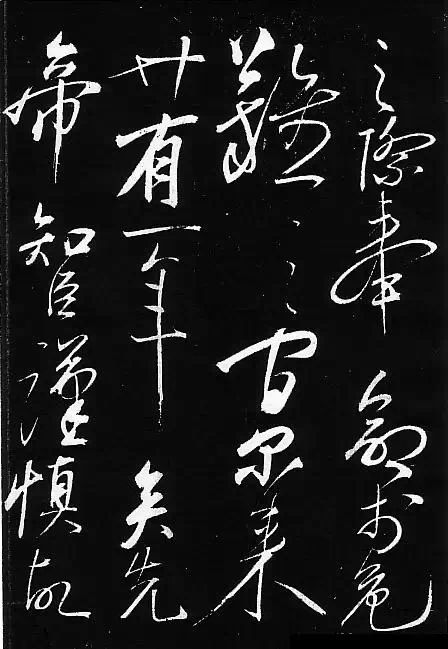 之際奉命於危
難之間尔來
廿有一年矣先
帝知臣謹慎故